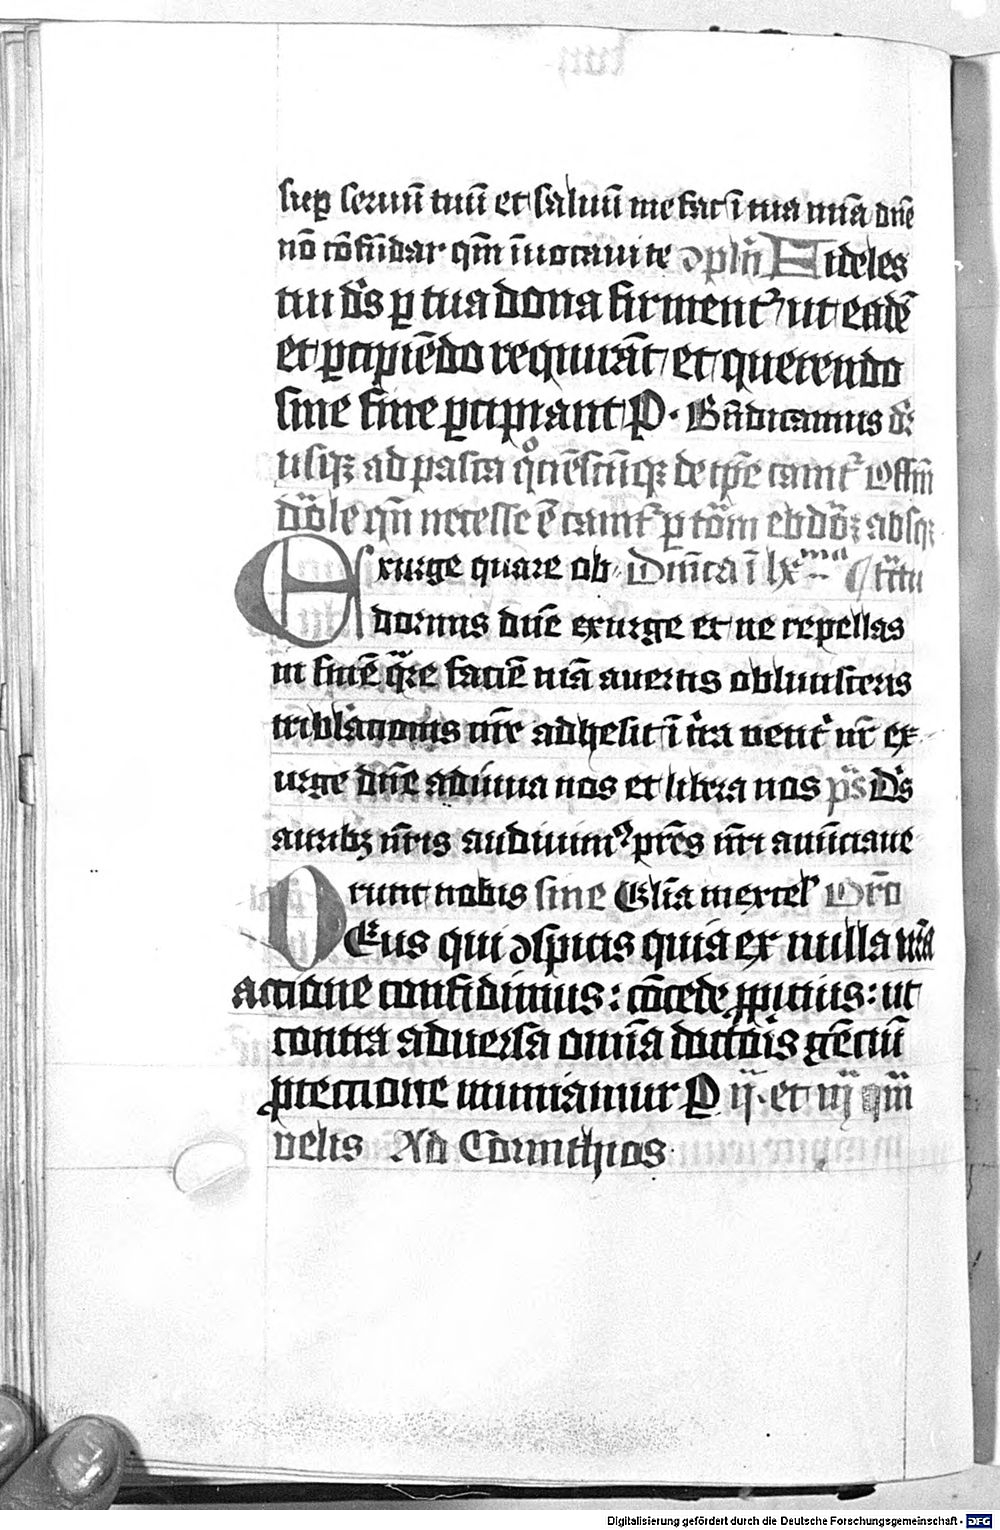 sup seruū tuū et saluū me fac ī tua mīa dn̄e
nō cōfūdar qm̄ īuocaui te ↄplīi Fideles
tui ds̄ ꝑ tua dona firment᷑ ut eadē
et ꝑcipiēdo requirāt et querendo
sine fine ꝑcipiant P· Bn̄dicamus dō
usqꝫ ad pasca qͦcīescūqꝫ de tp̄e cant᷑ Offm̄
dn̄ole qn̄ necesse ē cant᷑ ꝑ totam ebdōꝫ absqꝫ
Exurge quare ob Dnīca ī lxᵐᵃ
dormis dn̄e exurge et ne repellas
in finē qᵃre faciē tuā auertis obliuisceris
tribulacionis nr̄e adhesit ī tr̄a vent᷑ nr̄ ex
urge dn̄e adiuua nos et libera nos ps̄ Ds̄
auribꝫ nr̄is audiuimꝰ pr̄es nr̄i anūciaue
runt nobis sine Glīa mextel Oro
Deus qui ↄspicis quia ex nulla nr̄a
actione confidimus : cōcede ꝓpicius : ut
contra aduersa omīa doctois gēciū
ꝓtectione muniamur P ij· et iij qm̄
velis Ad Corinthios
Digitalisierung gefördert durch die Deutsche Forschungsgemeinschaft - DFG